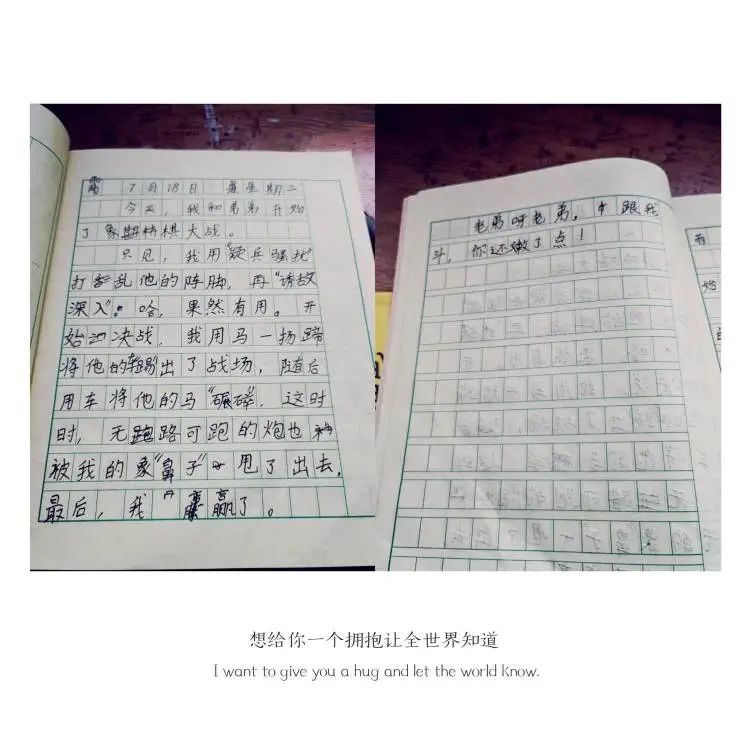 7月18日 星期二
今天，我和弟弟开始
了象棋大战。
只见，我用"疑兵骚扰"
打乱他的阵脚，再"诱敌
深入"。哈，果然有用。开
始决战，我用马一扬蹄
将他的车踢出了战场，随后
用车将他的马"碾碎"。这时
时，无跑路可跑的炮也
被我的象"鼻子"甩了出去，
最后，我赢了。
老弟呀老弟，跟我
斗，你还嫩了点！
想给你一个拥抱让全世界知道
I want to give you a hug and let the world know.